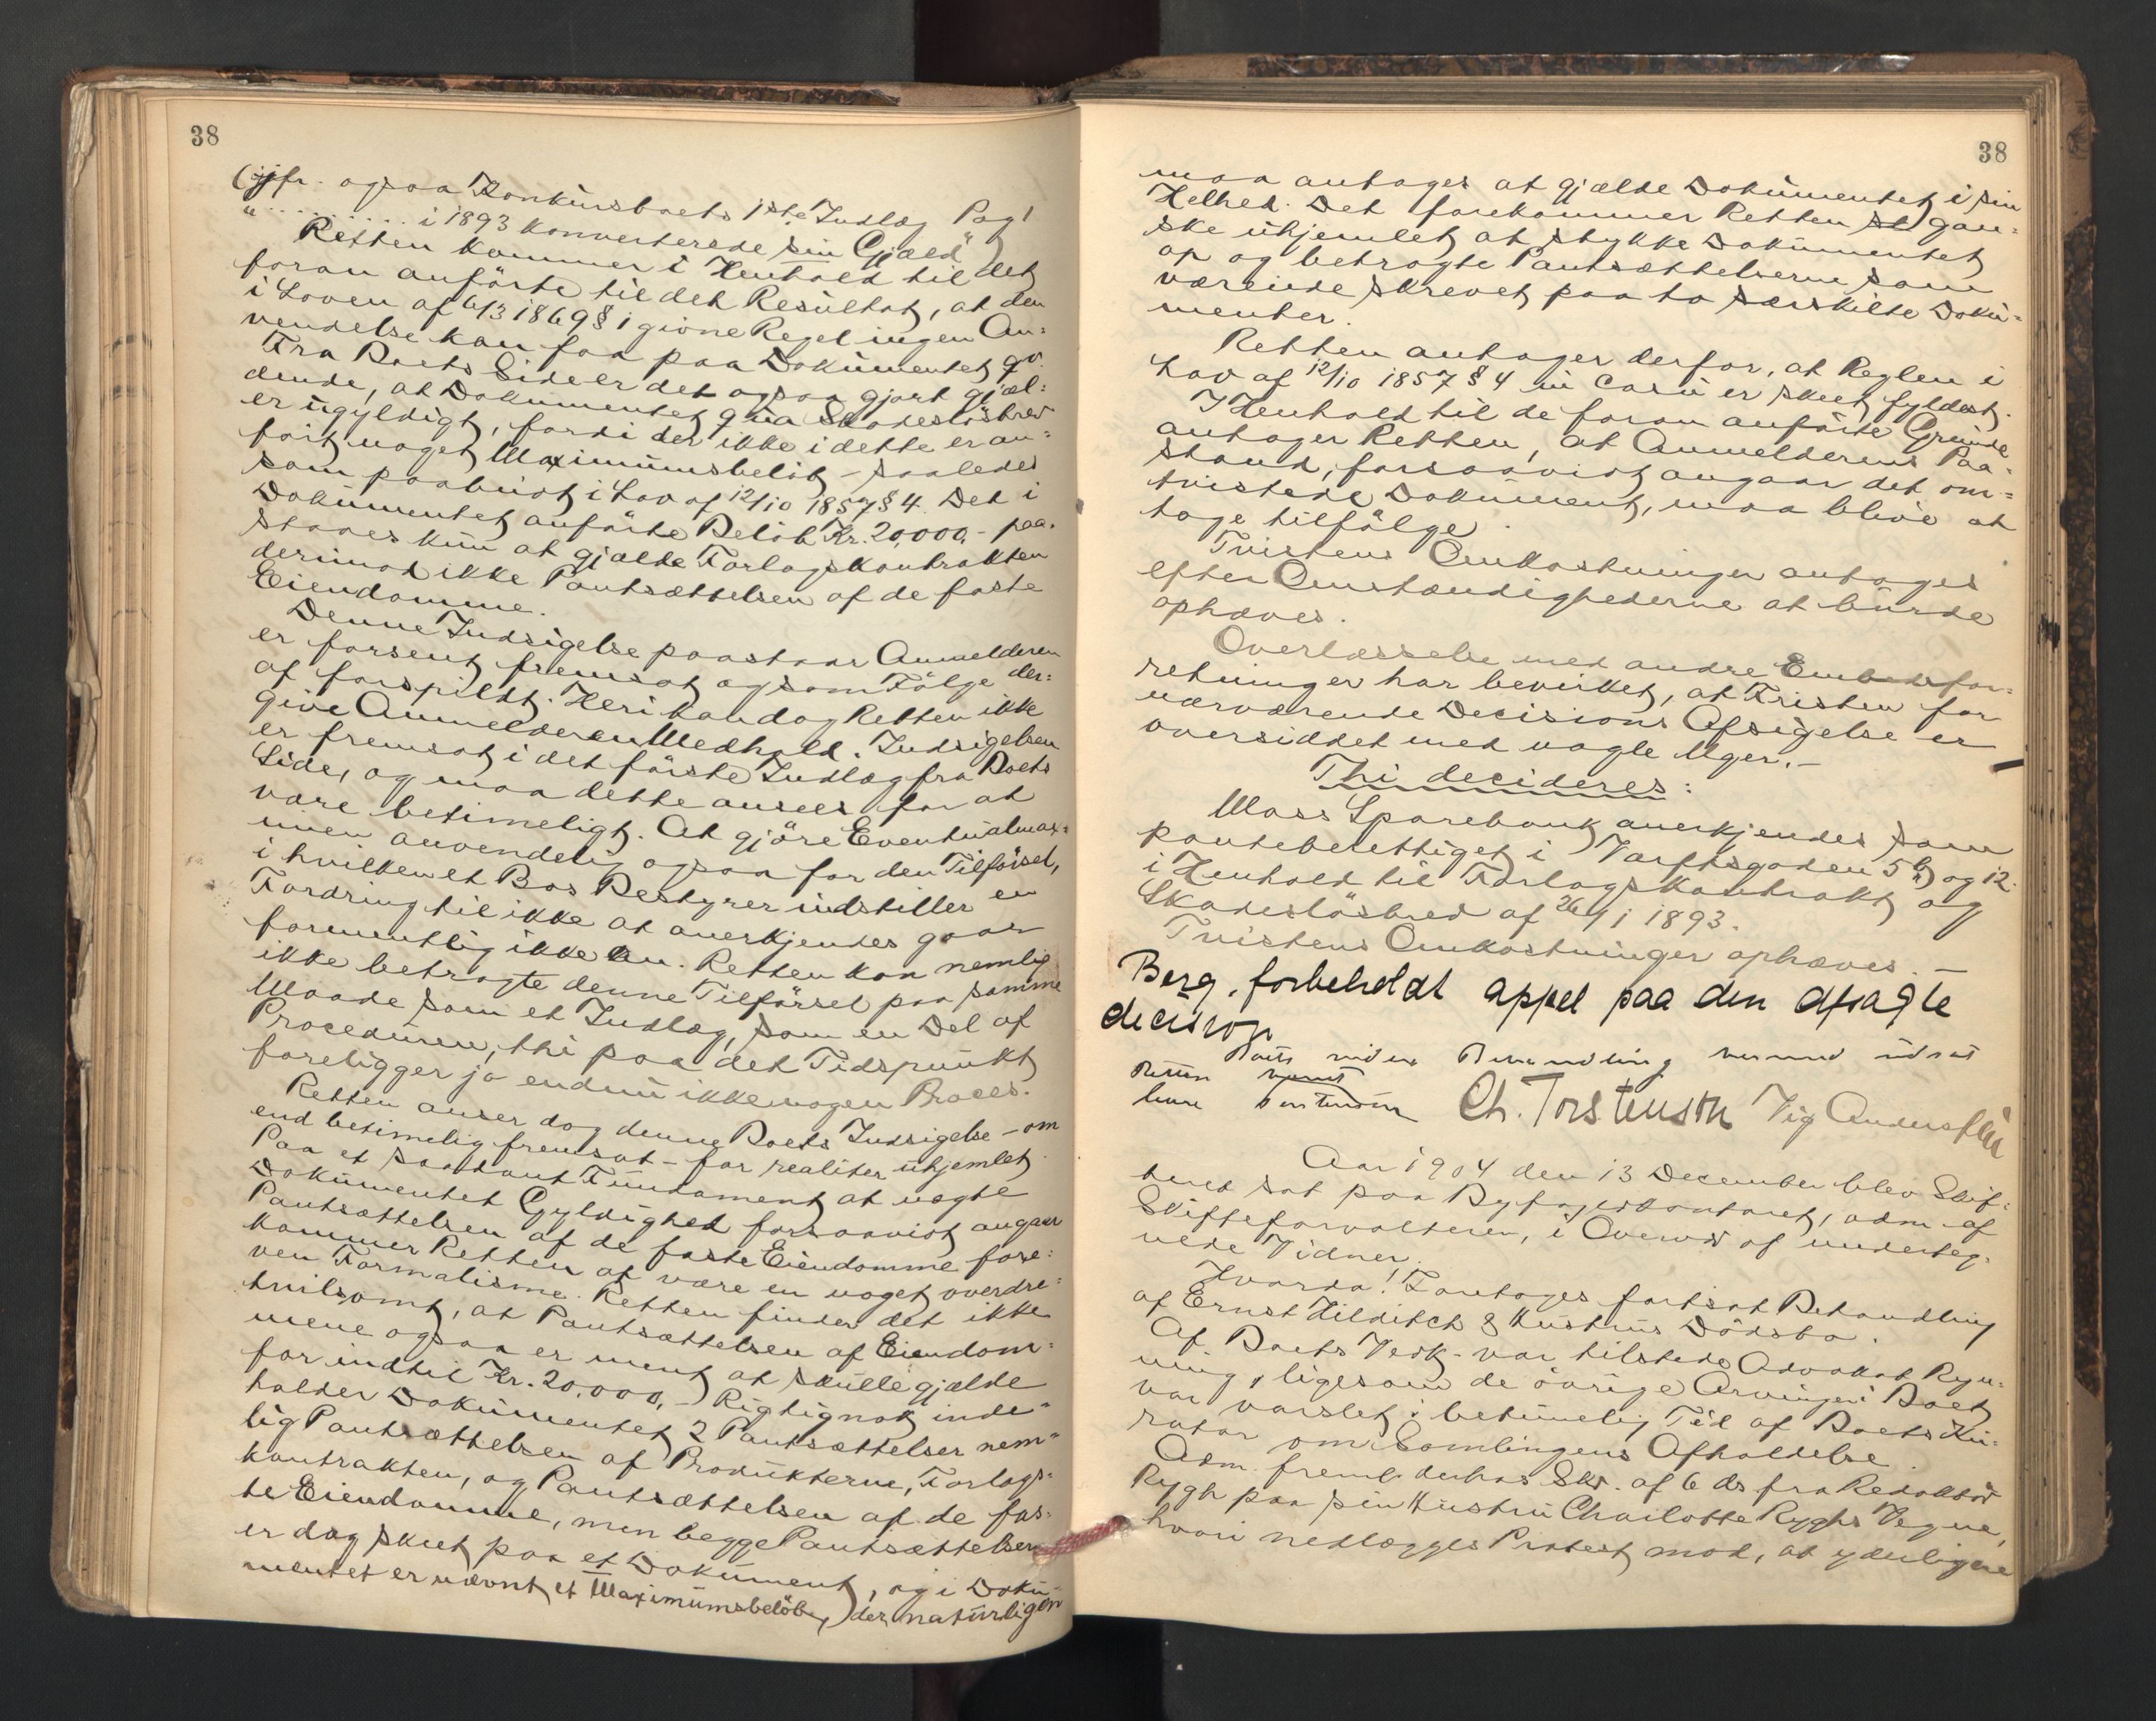 38
(jfr. ogsaa Konkursboets 1ste Indlæg Pag 1
"......... i 1893 konverterede sin Gjæld"
Retten kommer i Henhold til det
foran anførte til det Resultat, at den
i Loven af 6/3 1869 § 1 givne Regel ingen An=
vendelse kan faa paa Dokumentet qv.
Fra Boets Side er det ogsaa gjort gjæl=
dende, at Dokumentet qua Skadesløsbrev
er ugyldigt, fordi der ikke i dette er an=
ført noget Maximumsbeløb – saaledes
som paabudt i Lov af 12/10 1857 § 4. Det i
Dokumentet anførte Beløb Kr. 20,000,- paa=
staaes kun at gjælde Forlagskontrakten
derimod ikke Pantsættelsen af de faste
Eiendomme.
Denne Indsigelse paastaar Anmelderen
er forsent fremsat og som Følge der=
af forspildt. Heri kan dog Retten ikke
give Anmelderen Medhold. Indsigelsen
er fremsat i det første Indlæg fra Boets
Side, og maa dette ansees for at
være betimeligt. At gjøre Eventualmax=
imen anvendelig ogsaa for den Tilførsel,
i hvilken et Bos Bestyrer indstiller en
Fordring til ikke at anerkjendes gaar
formentlig ikke an. Retten kan nemlig
ikke betragte denne Tilførsel paa samme
Maade som et Indlæg, som en Del af
Proceduren, thi paa det Tidspunkt
foreligger jo endnu ikke nogen Proces.
Retten anser dog denne Boets Indsigelse – om
end betimelig fremsat – for realiter uhjemlet.
Paa et saadant Fundament at nægte
Dokumentet Gyldighed forsaavidt angaar
Pantsættelsen af de faste Eiendomme fore=
kommer Retten at være en noget overdre=
ven Formalisme. Retten finder det ikke
tvilsomt, at Pantsættelsen af Eiendom=
mene ogsaa er ment at skulle gjælde
for indtil Kr. 20,000,- Rigtignok inde=
holder Dokumentet 2 Pantsættelser nem=
lig Pantsættelsen af Produkterne, Forlags=
kontrakten, og Pantsættelsen af de fas=
te Eiendomme, men begge Pantsættelser
er dog skeet paa et Dokument, og i Doku=
mentet er nævnt et Maximumsbeløb, der naturligen
38
maa antages at gjælde Dokumentet i sin
Helhed. Det forekommer Retten gan=
ske uhjemlet at stykke Dokumentet
op og betragte Pantsættelserne som
værende skrevet paa to særskilte Doku=
menter.
Retten antager derfor, at Reglen i
Lov af 12/10 1857 § 4 in casu er skeet fyldest.
I Henhold til de foran anførte Grunde
antager Retten, at Anmelderens Paa=
stand, forsaavidt angaar det om=
tvistede Dokument, maa blive at
tage tilfølge.
Tvistens Omkostninger antages
efter Omstændighederne at burde
ophæves.
Overlæsselse med andre Embedsfor=
retninger har bevirket, at Fristen for
nærværende Decisions Afsigelse er
oversiddet med nogle Uger.–
Thi decideres:
Moss Sparebank anerkjendes som
panteberettiget i Værftsgaden 5 b) og 12.
i Henhold til Forlagskontrakt og
Skadesløsbrev af 26/1 1893.
Tvistens Omkostninger ophæves.–
Berg. forbeholdt appel paa den afsagte
decision
Boets videre Behandling udsat
Retten hævet
Ch. Torstenson Vig Andersen
Aar 1904 den 13 December blev Skif=
teret sat paa Byfogedkontoret, adm. af
Skifteforvalteren, i Overvær af underteg=
nede Vidner.
Hvorda! Foretages fortsat Behandling
af Ernst Hilditch & Hustrus Dødsbo.
Af Boets Vedk. var tilstede Advokat Ryn=
ning, ligesom de øvrige Arvinger i Boet
var varslet i betimelig Tid af Boets Ku=
rator om Samlingens Afholdelse.
Adm. freml. derhos Skr. af 6 ds fra Redaktør
Rygh paa sin Hustru Charlotte Ryghs Vegne,
hvori nedlægges Protest mod, at yderligere